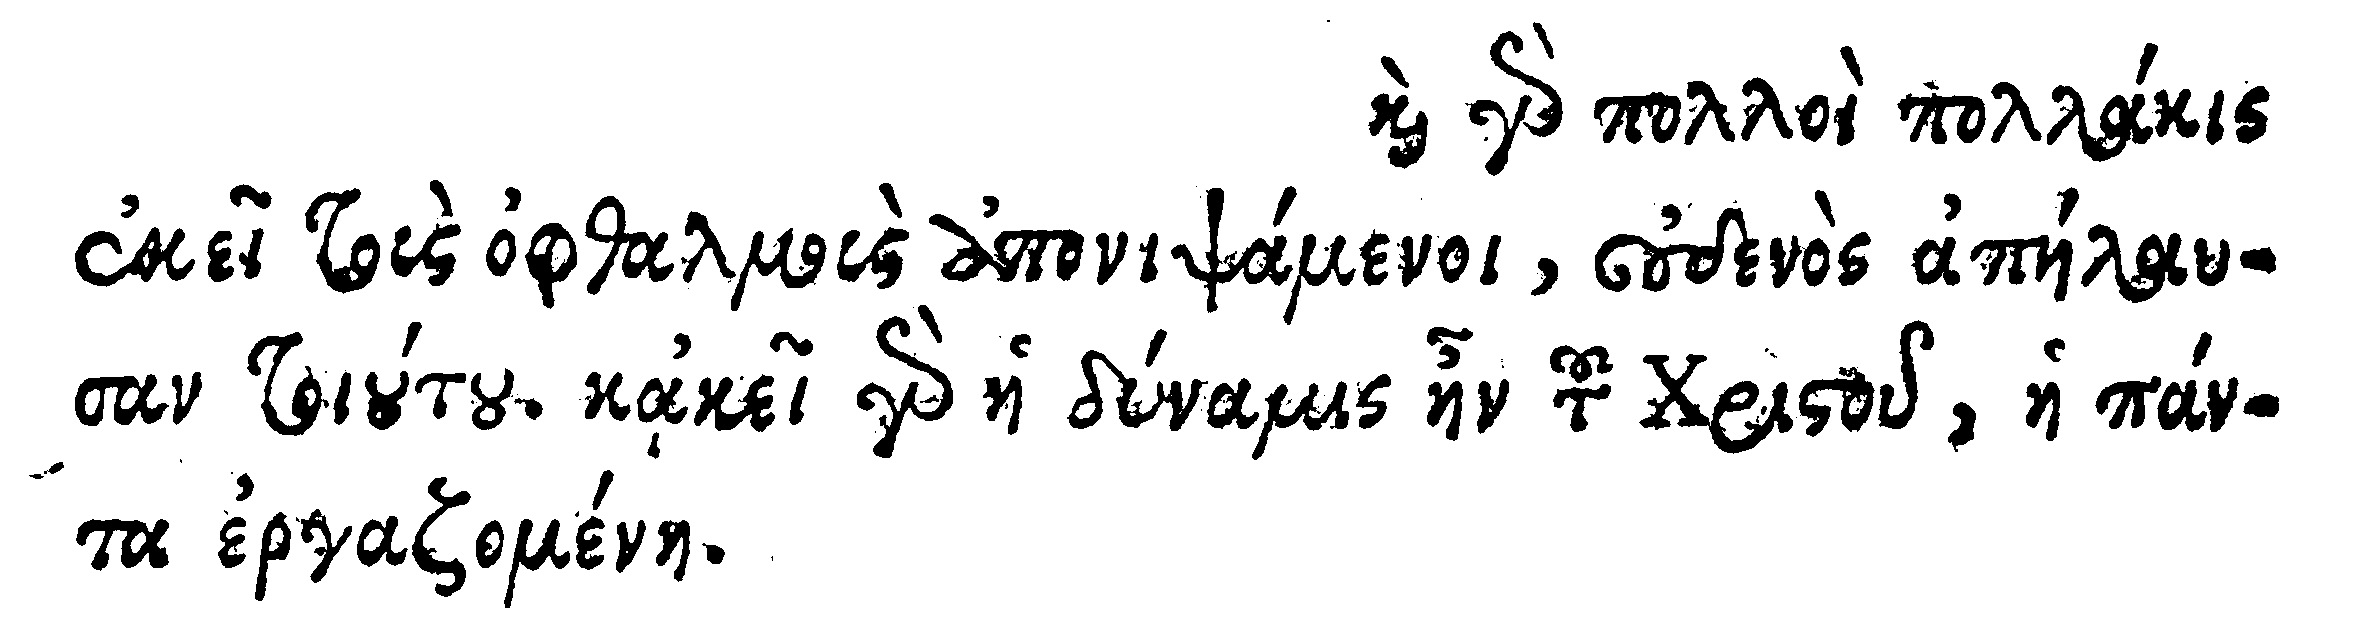 καὶ γὰρ πολλοὶ πολλάκις
ἐκεῖ τοὺς ὀφθαλμοὺς ἀπονιψάμενοι, οὐδενὸς ἀπήλαυ-
σαν τοιούτου. κᾀκεῖ γὰρ ἡ δύναμις ἦν τοῦ Χριστοῦ, ἡ πάν-
τα ἐργαζομένη.